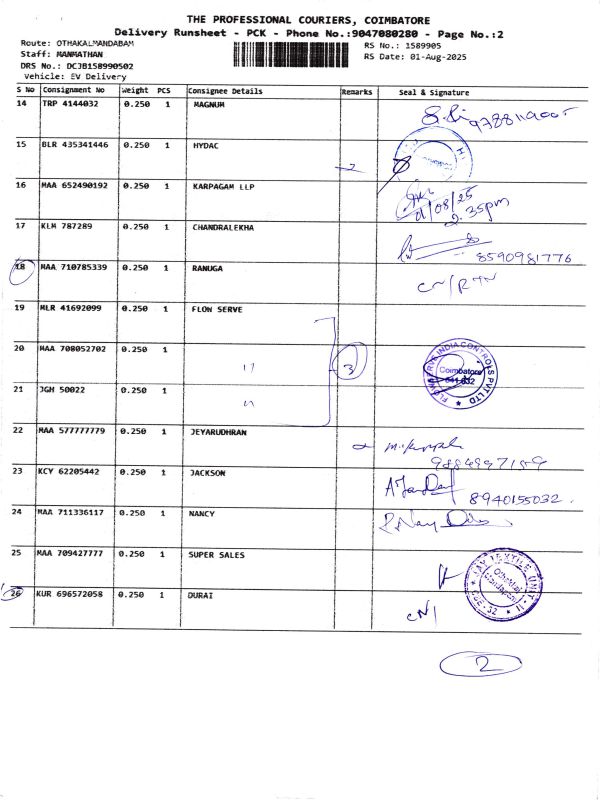 THE PROFESSIONAL COURIERS, COIMBATORE
Delivery Runsheet - PCK - Phone No.:9047080280 - Page No.:2
Route: OTHAKALMANDABAM
RS No.: 1589905
Staff: MANMATHAN
RS Date: 01-Aug-2025
DRS No.: DCJB158990502
Vehicle: EV Delivery
S No Consignment No Weight PCS Consignee Details Remarks Seal & Signature
14 TRP 4144032 0.250 1 MAGNUM
9788119005
15 BLR 435341446 0.250 1 HYDAC
16 MAA 652490192 0.250 1 KARPAGAM LLP
01/08/25
2.35pm
17 KLM 787289 0.250 1 CHANDRALEKHA
8590981776
18 MAA 710785339 0.250 1 RANUGA
CN/RTN
19 MLR 41692099 0.250 1 FLON SERVE
20 MAA 708052702 0.250 1 " 3
FLOWSERVE INDIA CONTROLS PVT LTD
Coimbatore
641 032
21 JGH 50022 0.250 1 "
22 MAA 577777779 0.250 1 JEYARUDHRAN
9884997159
23 KCY 62205442 0.250 1 JACKSON
8940155032
24 MAA 711336117 0.250 1 NANCY
25 MAA 709427777 0.250 1 SUPER SALES
26 KUR 696572058 0.250 1 DURAI
CN/
2